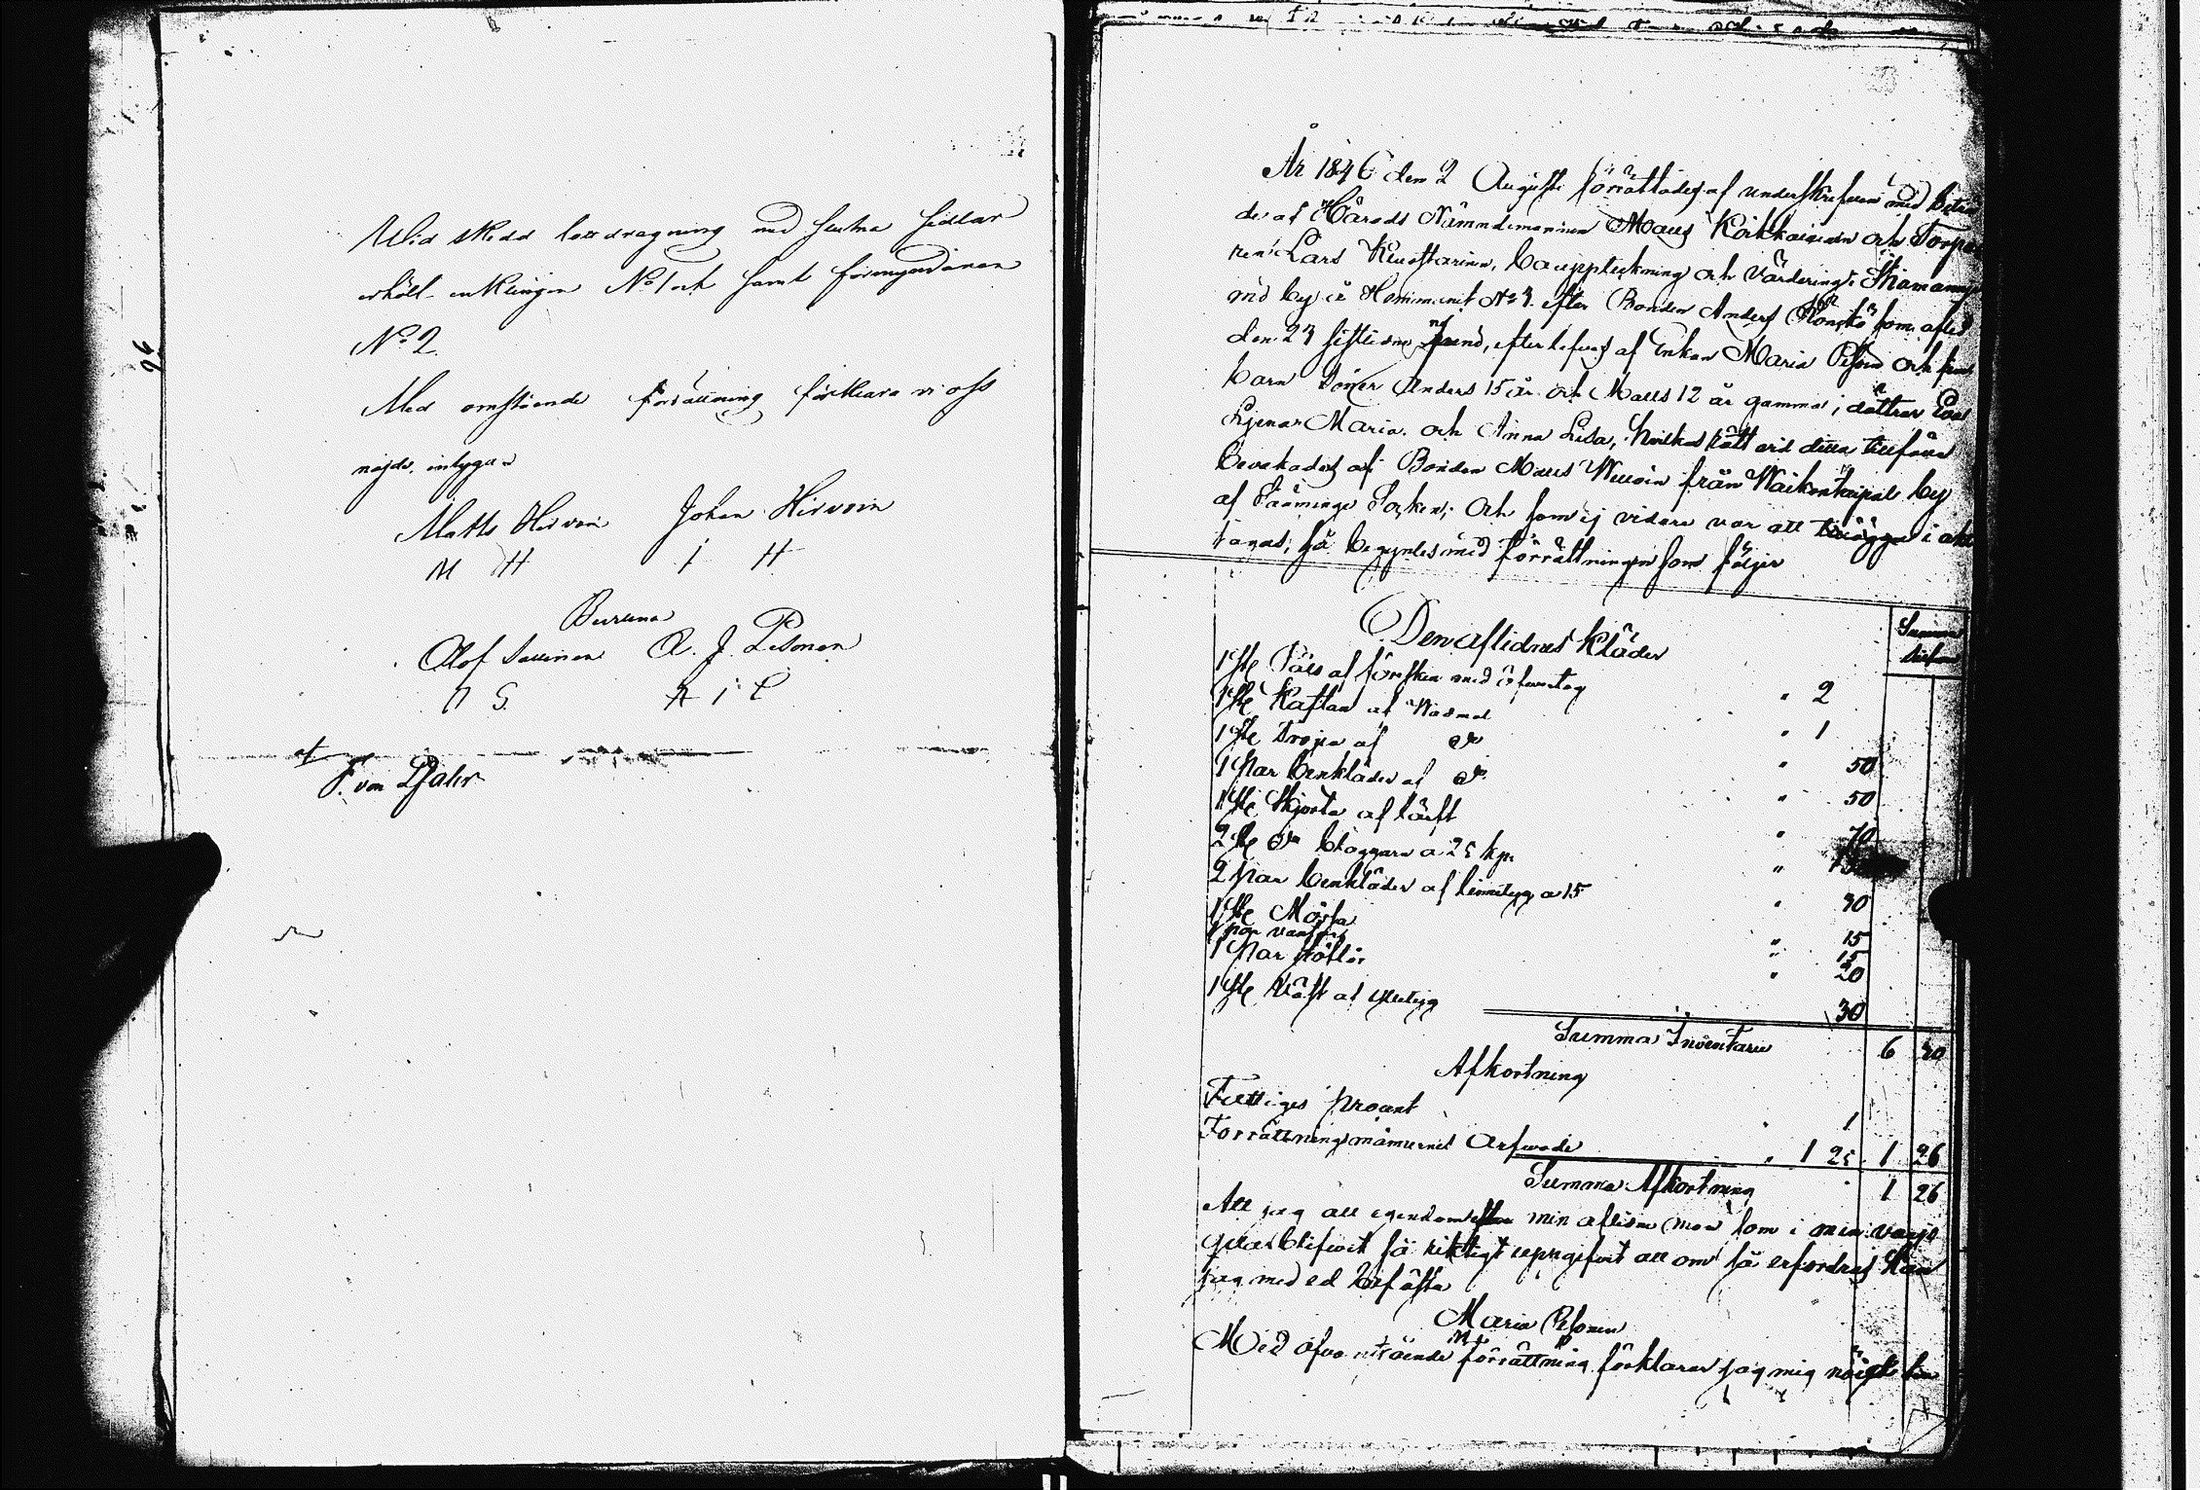 96
Wid skedd lottdragning med slutna sedlar
erhöll enklingen No 1 och samt förmyndaren
No 2.
Med omstående förrättning förklara vi oss
nöjde, intyga
Matts Hirvoin Johan Hirvoin
M H I H
Olof Sallinen A. J. Pesonen
O S
F. von
År 1846 den 2 Augusti förrättades af undertecknad med biträ
de af Härads Nämndemannen Mats Koikkalainen och Torpa
ren Lars Kiusttarinen, bouppteckning och värdering i
vid by å Hemmanet No 4 efter Bonden Anders som afled
den 23 sistledne, efterlefves af Enkan Maria Pesoin och sina
barn Söner Anders 15 år och Matts 12 år gammal; döttrar Eva
Maria och Anna Lisa, hvilkas rätt vid detta tillfälle
bevakades af Bonden Mats från by
af Sääminge Socken; Och som ej vidare var att i akt
tagas, så begyntes med förrättningen som följer
Den aflidnes Kläder
Summa
Silfver
1 st Päls af fårskin med öfvertog " 2
1 st Kaftan af Wadmal " 1
1 st Tröja af do " 50
1 Par benkläder af do " 50
1 st Skjorta af lärft " 70
2 st do blaggarn a 25 kpr "
2 par benkläder af linnetyg a 15 " 30
1 st Mössa " 15
1 par vantar " 15
1 Par stöflor " 20
1 st Väst af ylletyg 30
Summa Inventarie 6 40
Afkortning
Fattiges procent " 1
Förrättningsmännernes Arfwode " 1 25 1 26
Summa Afkortning 1 26
Att jag all egendom efter min aflidne man som i min värjo
qvarblifvit så riktigt uppgifvit att om så erfordras kan
jag med ed bekräfta
Maria Pesonen
Med ofvanstående förrättning förklarar jag mig nöjd